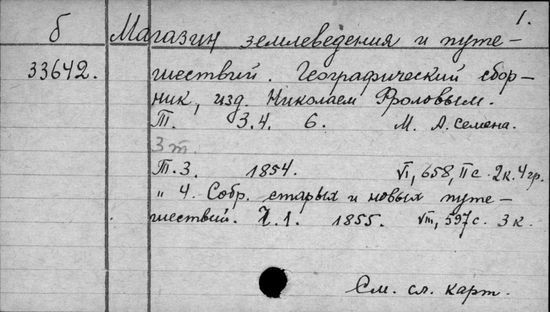 1.
б Магазин землеведения и путе-
33642. шествий. Географический сбор-
ник, изд. Николаем Фроловым.
Т. 3.4. 6. М. А. Семена.
3 т.
Т. 3. 1854. VI, 658, II с. 2 к. 4 гр.
" 4. Собр. старых и новых путе-
шествий. Ч. 1. 1855. VIII, 597 с. 3 к.
См. сл. карт.